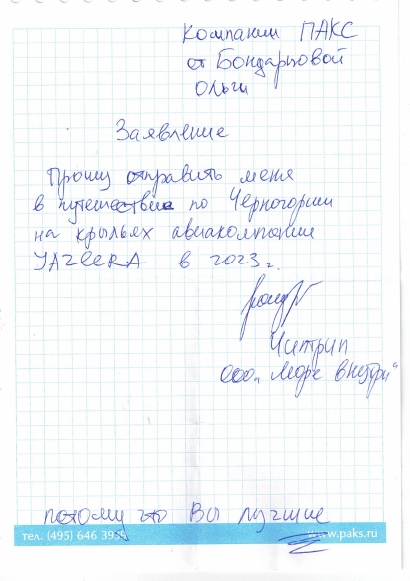 Компании ПАКС
от Бондарьовой
Ольги
Заявление
Прошу отправить меня
в путешествие по Черногории
на крыльях авиакомпании
в 2023 г.
Читрип
ООО "Море внутри"
потому что Вы лучшие
тел. (495) 646 393
www.paks.ru